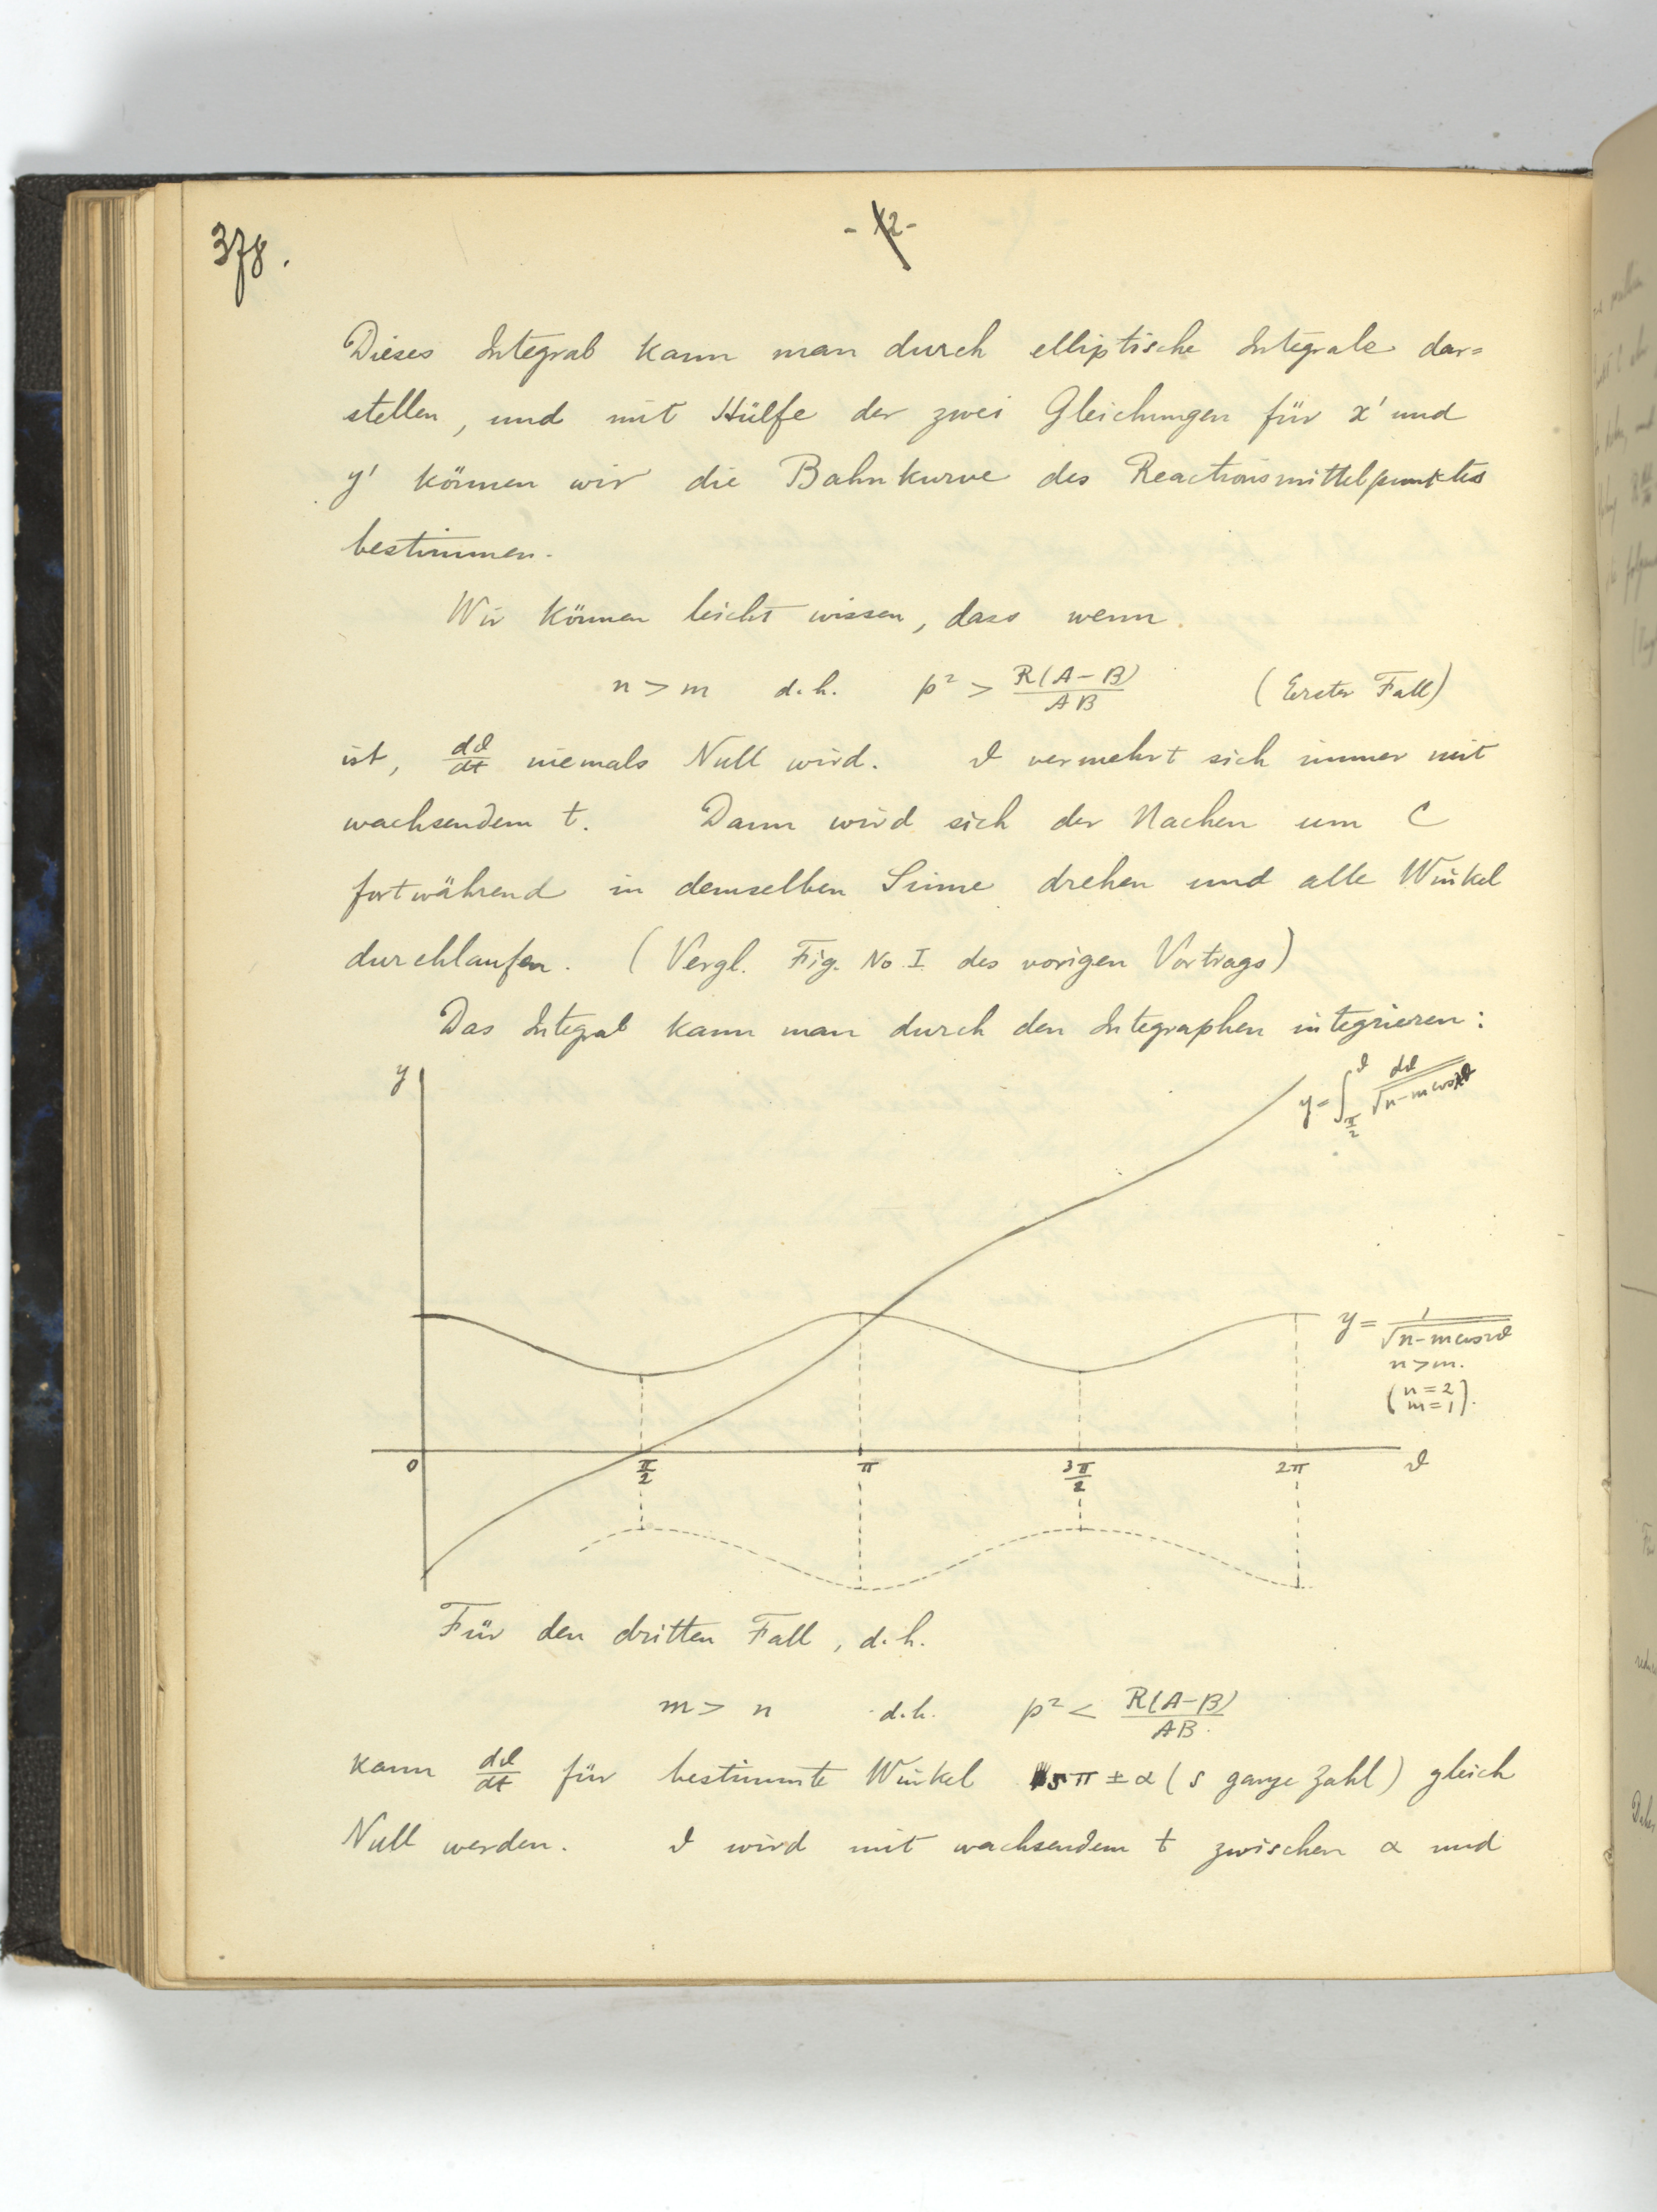 378.
- 12 -
Dieses Integral kann man durch elliptische Integrale dar=
stellen, und mit Hülfe der zwei Gleichungen für x' und
y' können wir die Bahnkurve des Reactionsmittelpunktes
bestimmen.
Wir können leicht wissen, dass wenn
n > m d.h. p² > R(A-B)/AB (Erster Fall)
ist, dϑ/dt niemals Null wird. ϑ vermehrt sich immer mit
wachsendem t. Dann wird sich der Nachen um C
fortwährend in demselben Sinne drehen und alle Winkel
durchlaufen. (Vergl. Fig. No I des vorigen Vortrags)
Das Integral kann man durch den Integraphen integrieren:
y
y = ∫_{π/2}^{ϑ} dϑ/√(n-m cos2ϑ)
y = 1/√(n-m cos2ϑ)
n > m.
(n=2
m=1).
0 π/2 π 3π/2 2π ϑ
Für den dritten Fall, d.h.
m > n d.h. p² < R(A-B)/AB.
kann dϑ/dt für bestimmte Winkel sπ ± α (s ganze Zahl) gleich
Null werden. ϑ wird mit wachsendem t zwischen α und